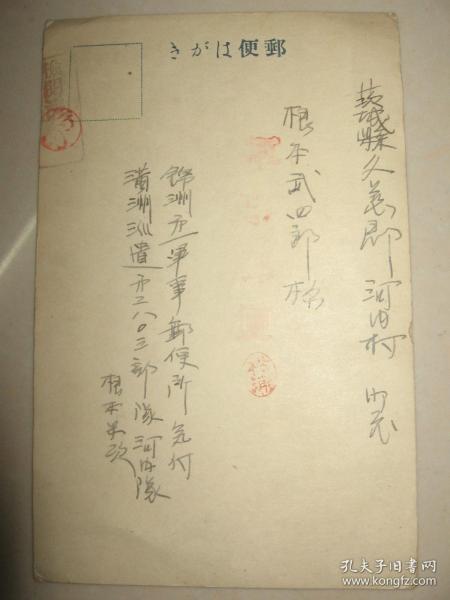 郵便はがき
茨城縣久慈郡河内村
根本武四郎様
錦洲第一軍事郵便所気付
満洲派遣第二八〇三部隊河内隊
根本
孔夫子旧书网
www.kongfz.com